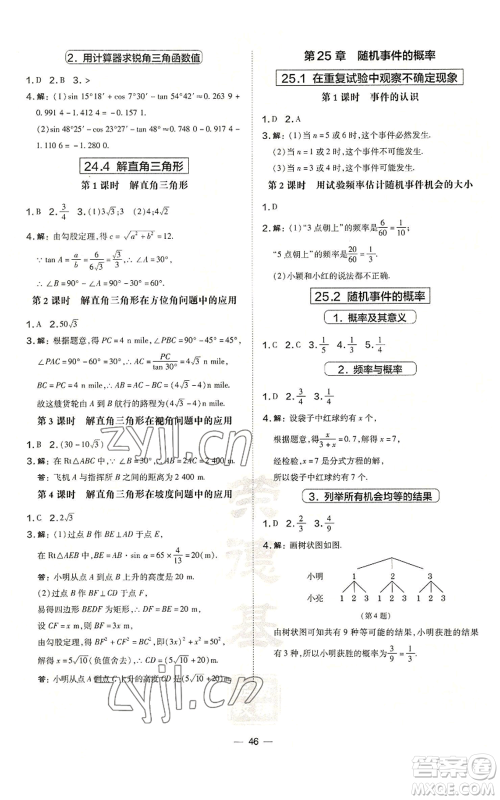 2. 用计算器求锐角三角函数值
1. D 2. B 3. >
4. 解：(1)sin 15°18′+cos 7°30′-tan 54°42′≈0.263 9+
0.991 4-1.412 4=-0.157 1.
(2)sin 48°25′-cos 23°27′-tan 48°≈0.748 0-0.917 4-
1.110 6=-1.280 0.
24.4 解直角三角形
第 1 课时 解直角三角形
1. B 2. 3/4 3. 6√3
4. 解：由勾股定理，得 c=√(a²+b²)=
∵tan A=a/b=6/(6√3)=√3/3，∴∠A=30°.
∴∠B=90°-∠A=90°-30°=60°.
第 2 课时 解直角三角形在方位角问题中的应用
1. A 2. 50√3
3. 解：根据题意，得 PC=4 n mile，∠PBC=90°，∠APC=
90°-60°=30°，∴AC=PC/tan 30°=
故这艘货轮由 A 到 B 航行的路程为
第 3 课时 解直角三角形在视角问题中的应用
1. B 2. (30-10√3)
3. 解：在 Rt△ABC 中，∠B=30°，∴AB=2AC=2 400 m.
答：飞机 A 与指挥所 B 的距离为 2 400 m.
第 4 课时 解直角三角形在坡度问题中的应用
1. C 2. 2√3
3. 解：(1)过点 B 作 BE⊥AC 于点 E.
在 Rt△ABE 中，BE=AB·sin α=65×4/13=20(m).
答：小明从点 A 到点 B 上升的高度是 20 m.
(2)过点 B 作 BF⊥CD 于点 F.
易知四边形 BEDF 为矩形，∴DF=BE=20 m.
在 Rt△BCF 中，CF=x，则 BF=3x.
由勾股定理，得 CF²+BF²=BC²，即(3x)²+x²=50².
解得 x=5√10(负值舍去)，∴CD=(5√10+20)m.
答：小明从点 A 到点 C 上升的高度为(5√10+20)m.
第 25 章 随机事件的概率
25.1 在重复试验中观察不确定现象
第 1 课时 事件的认识
1. D 2. A
3. 解：(1)当 n=5 或 6 时，这个事件必然发生.
(2)当 n=1 或 2 时，这个事件不可能发生.
(3)当 n=3 或 4 时，这个事件可能发生.
第 2 课时 用试验频率估计随机事件机会的大小
1. A
2. 解：(1)“3 点朝上”的频率是6/60=1/10；
“5 点朝上”的频率是20/60=1/3.
(2)小颖和小红的说法都不正确.
25.2 随机事件的概率
1. 概率及其意义
1. C 2. C 3. 1/5 4. 1/3
2. 频率与概率
1. D 2. C 3. 1/4
4. 解：设袋子中红球约有 x 个，
根据题意，得3/(3+x)=0.3，解得 x=7.
经检验，x=7 是分式方程的解.
答：袋子中红球约有 7 个.
3. 列举所有机会均等的结果
1. D 2. C 3. 2/3
4. 解：画树状图如图.
小明 1 2 3
小亮 1 2 3 1 2 3 1 2 3
(第 4 题)
由树状图可知共有 9 种等可能的结果，其中小明获胜的结果
有 3 种，所以小明获胜的概率为3/9=1/3.
46